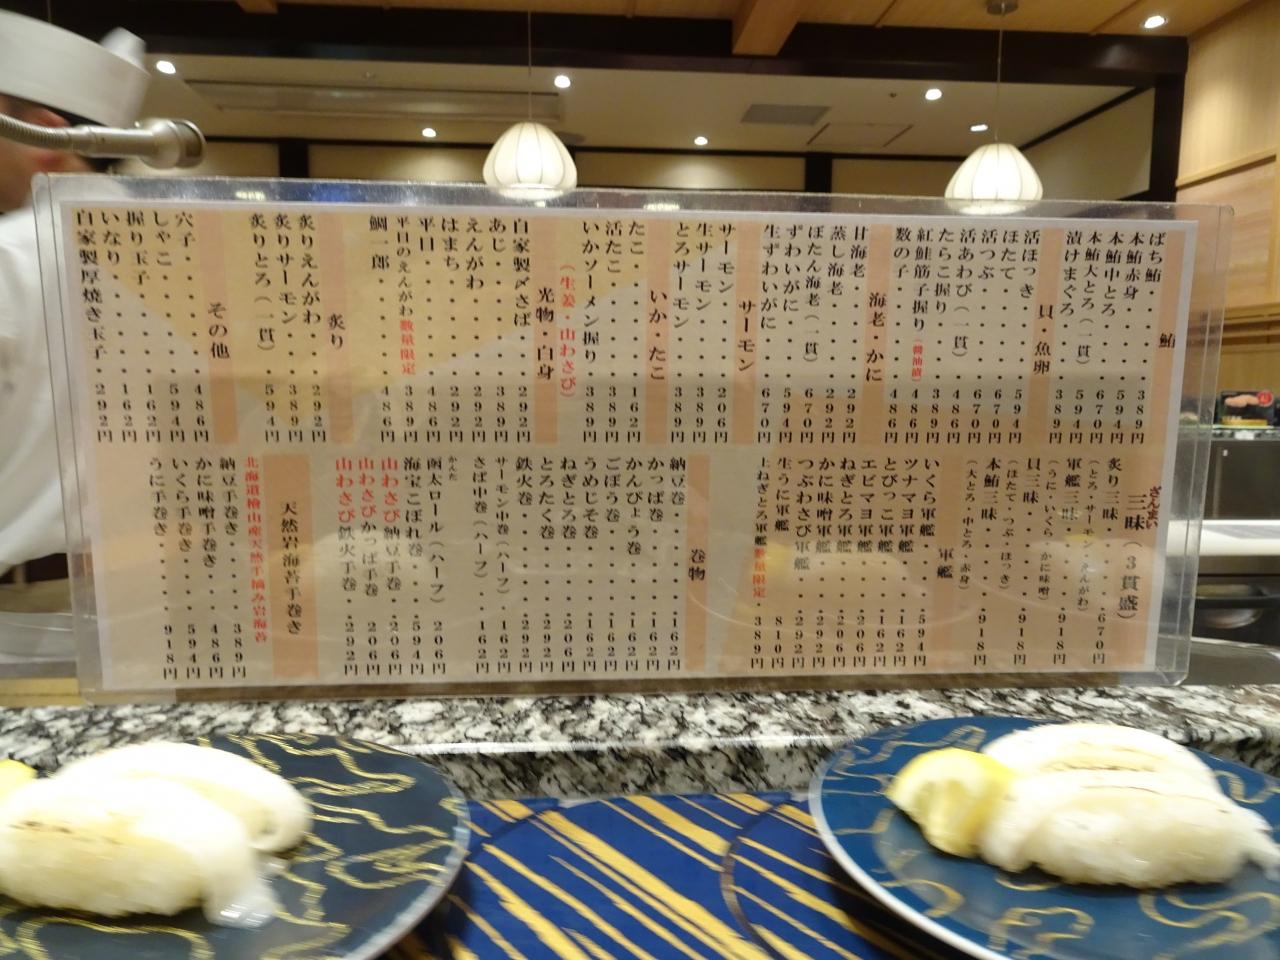 鮪
ばち鮪・・・・389円
本鮪赤身・・・・594円
本鮪中とろ・・・・670円
本鮪大とろ(一貫)・・594円
漬けまぐろ・・・・389円
貝・魚卵
活ほっき・・・・594円
ほたて・・・・670円
活つぶ・・・・670円
活あわび(一貫)・・486円
たらこ握り・・・・389円
紅鮭筋子握り(醤油漬)・・486円
数の子・・・・486円
海老・かに
甘海老・・・・292円
蒸し海老・・・・292円
ぼたん海老(一貫)・・670円
ずわいがに・・・・594円
生ずわいがに・・・・670円
サーモン
サーモン・・・・206円
生サーモン・・・・389円
とろサーモン・・・・389円
いか・たこ
たこ・・・・162円
活たこ・・・・389円
いかソーメン握り・・389円
(生姜・山わさび)
光物・白身
自家製〆さば・・・・292円
あじ・・・・389円
えんがわ・・・・292円
はまち・・・・292円
平目・・・・486円
平目のえんがわ数量限定・・389円
鯛一郎・・・・486円
炙り
炙りえんがわ・・・・292円
炙りサーモン・・・・389円
炙りとろ(一貫)・・594円
その他
穴子・・・・486円
しゃこ・・・・594円
握り玉子・・・・162円
いなり・・・・162円
自家製厚焼き玉子・・292円
三味(3貫盛)
ざんまい
炙り三味・・・・670円
(とろ・サーモン・えんがわ)
軍艦三味・・・・918円
(うに・いくら・かに味噌)
貝三味・・・・918円
(ほたて・つぶ・ほっき)
本鮪三味・・・・918円
(大とろ・中とろ・赤身)
軍艦
いくら軍艦・・・・594円
ツナマヨ軍艦・・・・162円
とびっこ軍艦・・・・162円
エビマヨ軍艦・・・・206円
ねぎとろ軍艦・・・・206円
かに味噌軍艦・・・・292円
つぶわさび軍艦・・・・292円
生うに軍艦・・・・810円
上ねぎとろ軍艦数量限定・389円
巻物
納豆巻・・・・162円
かっぱ巻・・・・162円
かんぴょう巻・・・・162円
ごぼう巻・・・・162円
うめじそ巻・・・・162円
ねぎとろ巻・・・・206円
とろたく巻・・・・292円
鉄火巻・・・・292円
サーモン中巻(ハーフ)・・162円
さば中巻(ハーフ)・・162円
かんた
函太ロール(ハーフ)・206円
海宝こぼれ巻・・・・594円
山わさび納豆手巻・・206円
山わさびかっぱ手巻・・206円
山わさび鉄火手巻・・292円
天然岩海苔手巻き
北海道檜山産天然手摘み岩海苔
納豆手巻き・・・・389円
かに味噌手巻き・・・・486円
いくら手巻き・・・・594円
うに手巻き・・・・918円